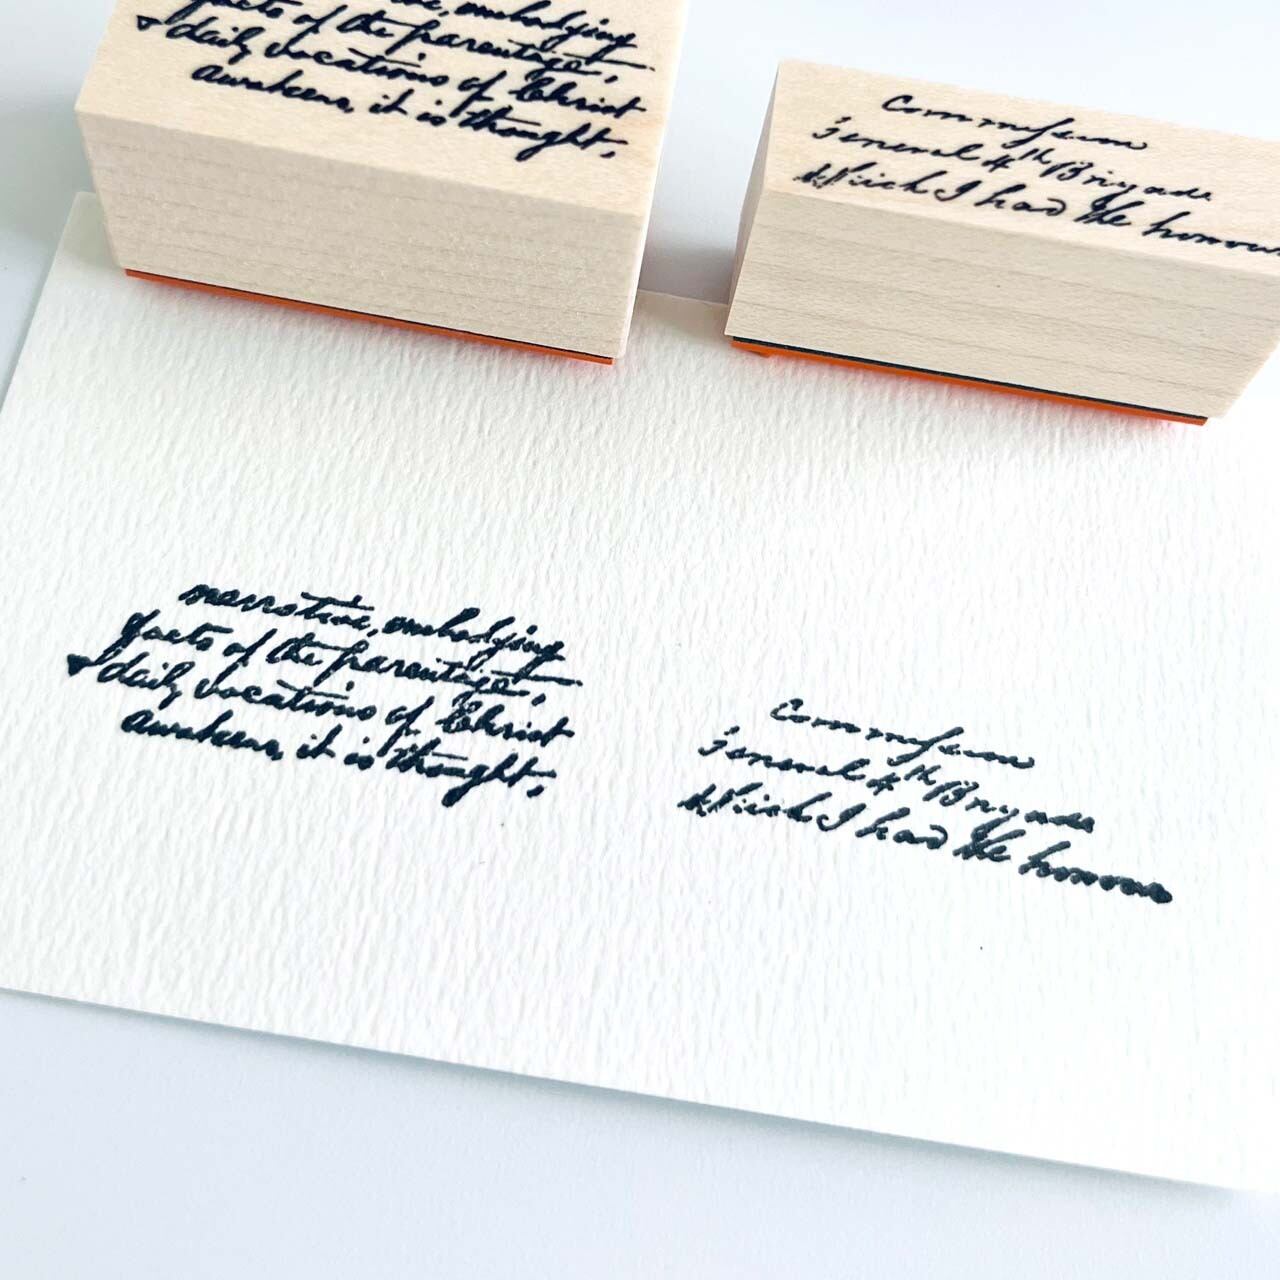 embodying
facts of the parentage,
daily vocations of Christ
awakens, it is thought,
General 4th Brigade
Which I had the honour
narrative, embodying
facts of the parentage,
daily vocations of Christ
awakens, it is thought,
General 4th Brigade
Which I had the honour